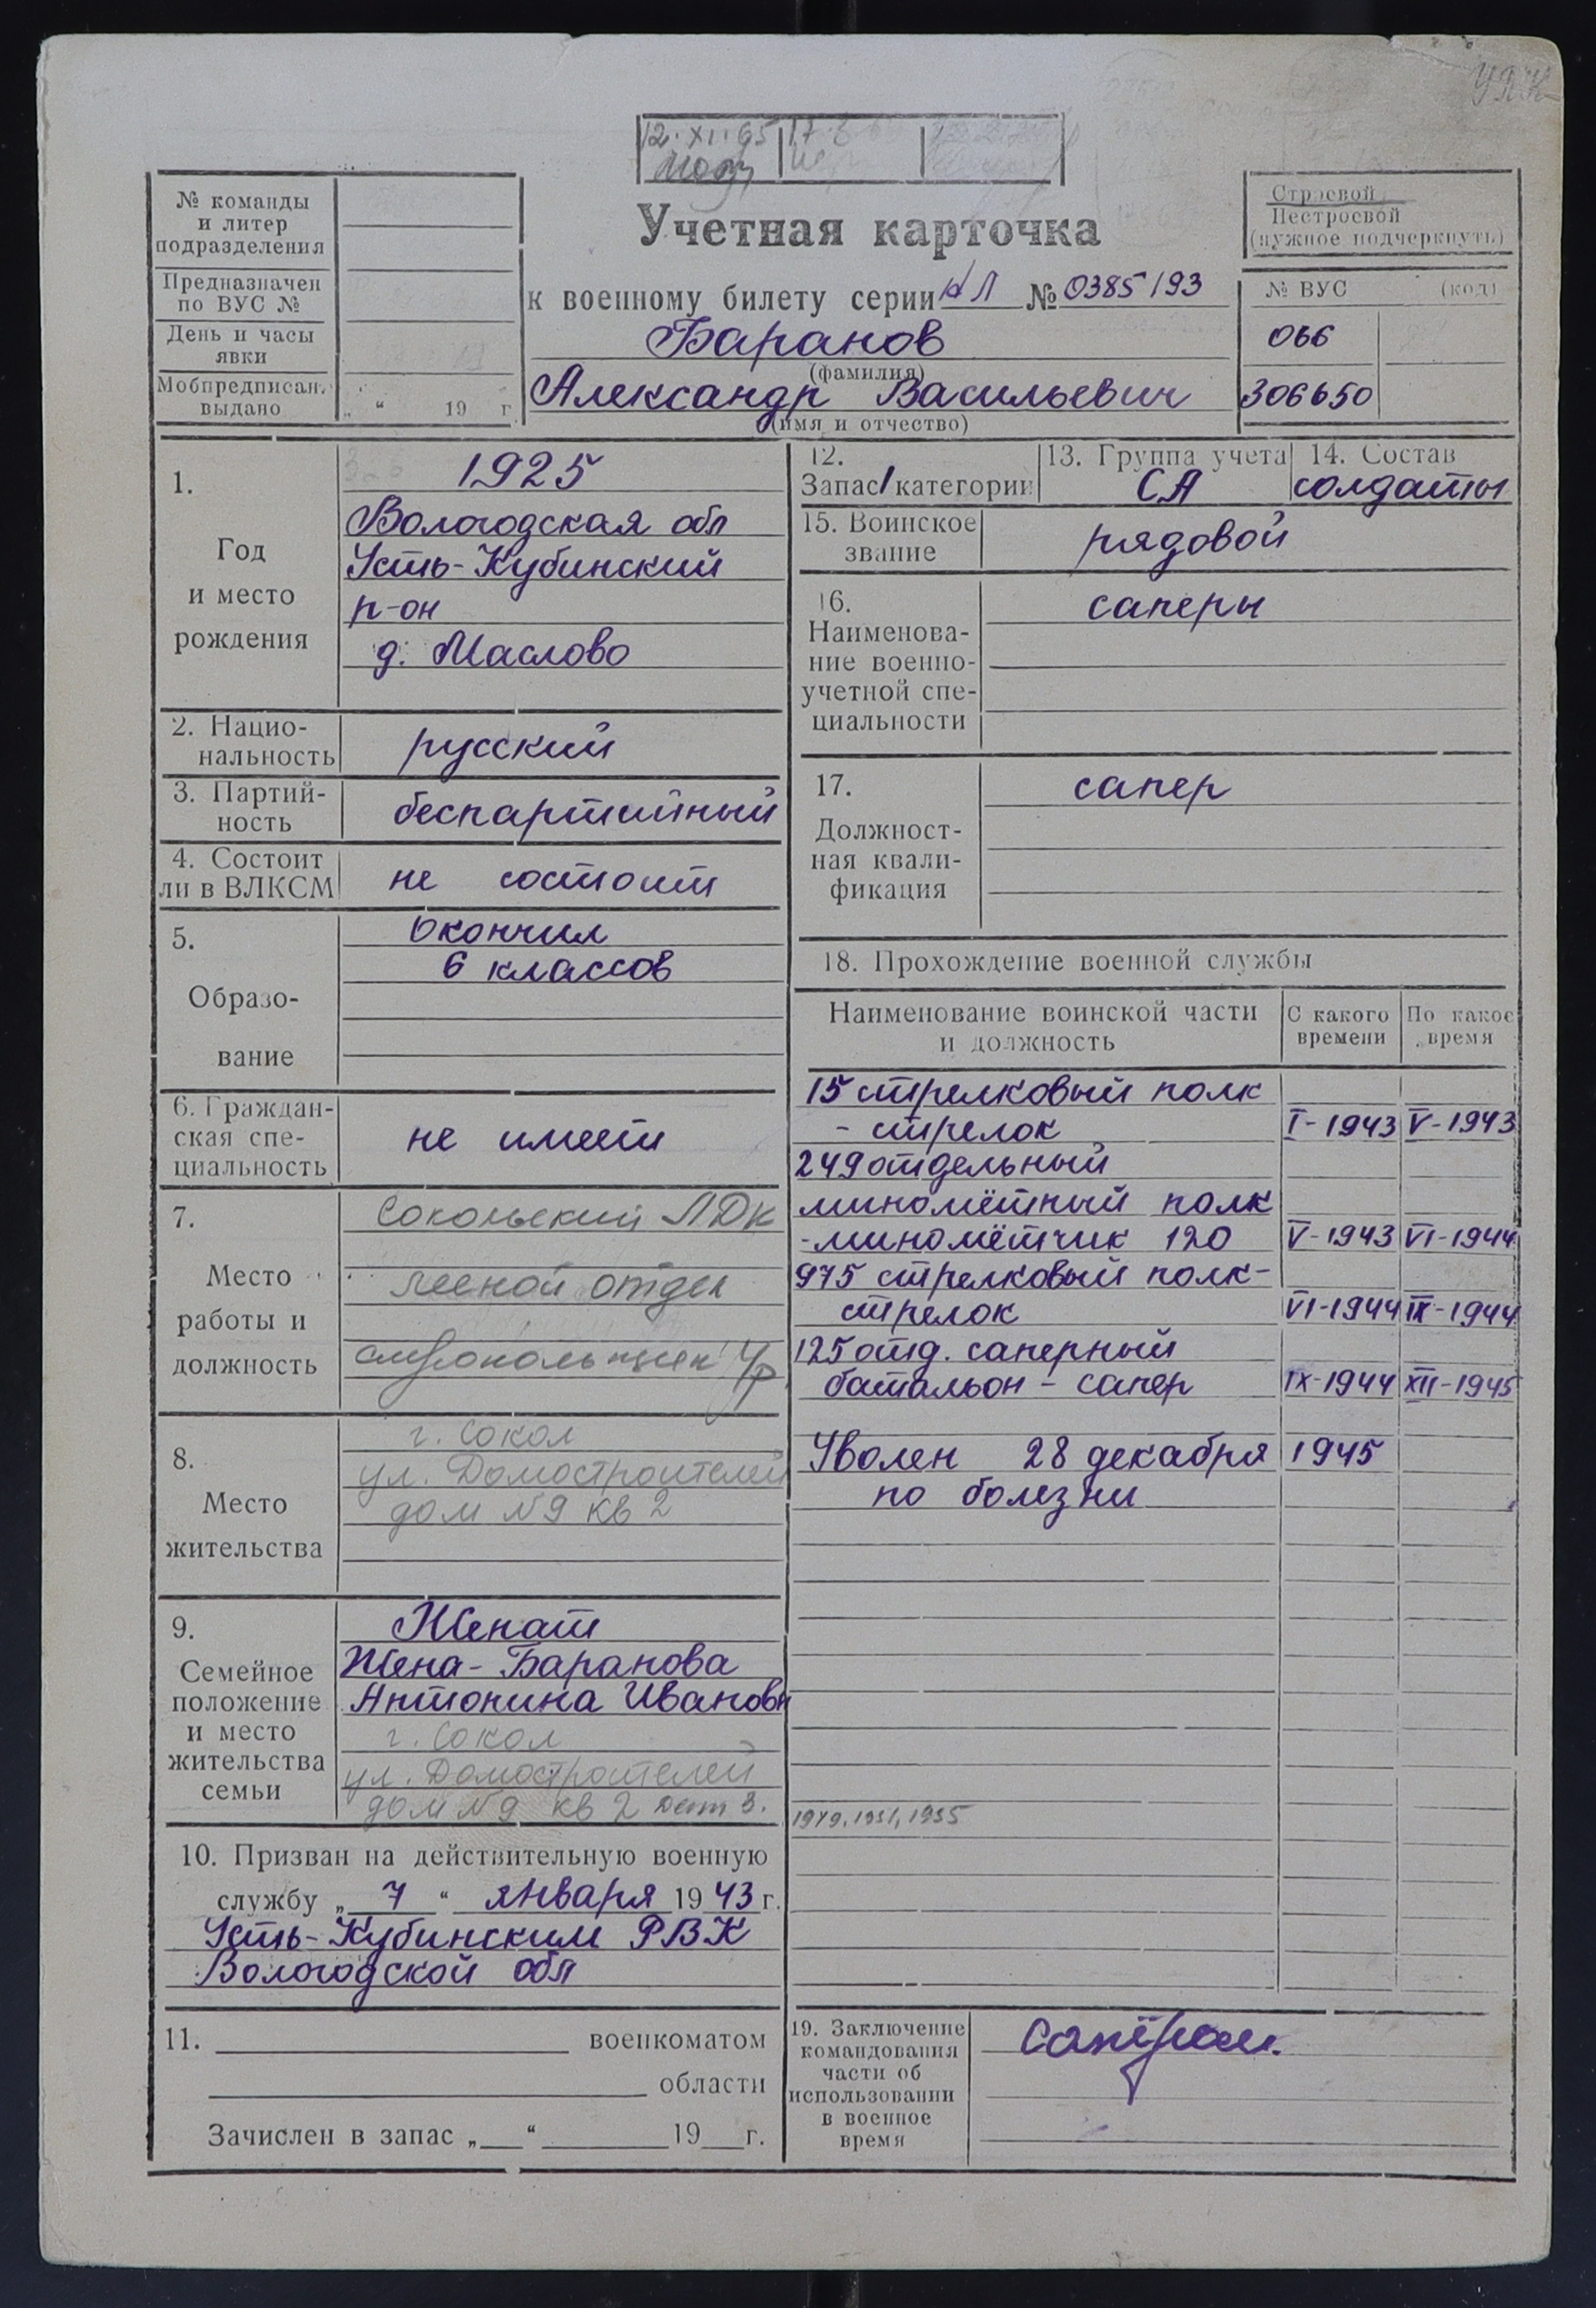 УПК
12.XI.65
№ команды
и литер
подразделения
Предназначен
по ВУС №
День и часы
явки
Мобпредписан.
выдано „ “ 19 г
Учетная карточка
к военному билету серии № 0385193
Баранов
(фамилия)
Александр Васильевич
(имя и отчество)
Строевой
Нестроевой
(нужное подчеркнуть)
№ ВУС (код)
066
306650
1.
Год
и место
рождения
1925
Вологодская обл
Усть-Кубинский
р-он
д. Маслово
2. Нацио-
нальность
русский
3. Партий-
ность
беспартийный
4. Состоит
ли в ВЛКСМ
не состоит
5.
Образо-
вание
Окончил
6 классов
6. Граждан-
ская спе-
циальность
не имеет
7.
Место
работы и
должность
Сокольский ЛДК
лесной отдел
8.
Место
жительства
г. Сокол
ул. Домостроителей
дом №9 кв 2
9.
Семейное
положение
и место
жительства
семьи
Женат
Жена - Баранова
Антонина Ивановн
г. Сокол
ул. Домостроителей
дом №9 кв 2 дет 3.
1949, 1951, 1955
10. Призван на действительную военную
службу „ 7 “ января 1943 г.
Усть-Кубинским РВК
Вологодской обл
11. военкоматом
области
Зачислен в запас „ “ 19 г.
12.
Запас 1 категории
13. Группа учета
СА
14. Состав
солдаты
15. Воинское
звание
рядовой
16.
Наименова-
ние военно-
учетной спе-
циальности
саперы
17.
Должност-
ная квали-
фикация
сапер
18. Прохождение военной службы
Наименование воинской части
и должность
С какого
времени
По какое
время
15 стрелковый полк
- стрелок I-1943 V-1943
249 отдельный
миномётный полк
- миномётчик 120 V-1943 VI-1944
975 стрелковый полк -
стрелок VI-1944 IX-1944
125 отд. саперный
батальон - сапер IX-1944 XII-1945
Уволен 28 декабря 1945
по болезни
19. Заключение
командования
части об
использовании
в военное
время
сапёром.